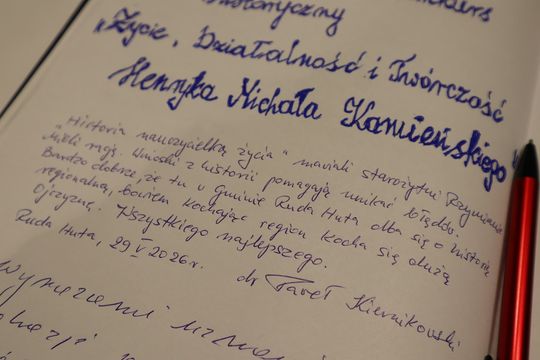 Historyczny
„Życie, Działalność i Twórczość
Henryka Michała Kamieńskiego
„Historia nauczycielką życia" mawiali starożytni Rzymianie
Mieli rację. Wnioski z historii pomagają unikać błędów.
Bardzo dobrze, że tu w Gminie Ruda Huta dba się o historię
regionalną, bowiem kochając region kocha się dużą
Ojczyznę. Wszystkiego najlepszego.
Ruda Huta, 29 V 2026r.
dr Paweł Kiernikowski
Wyrazami